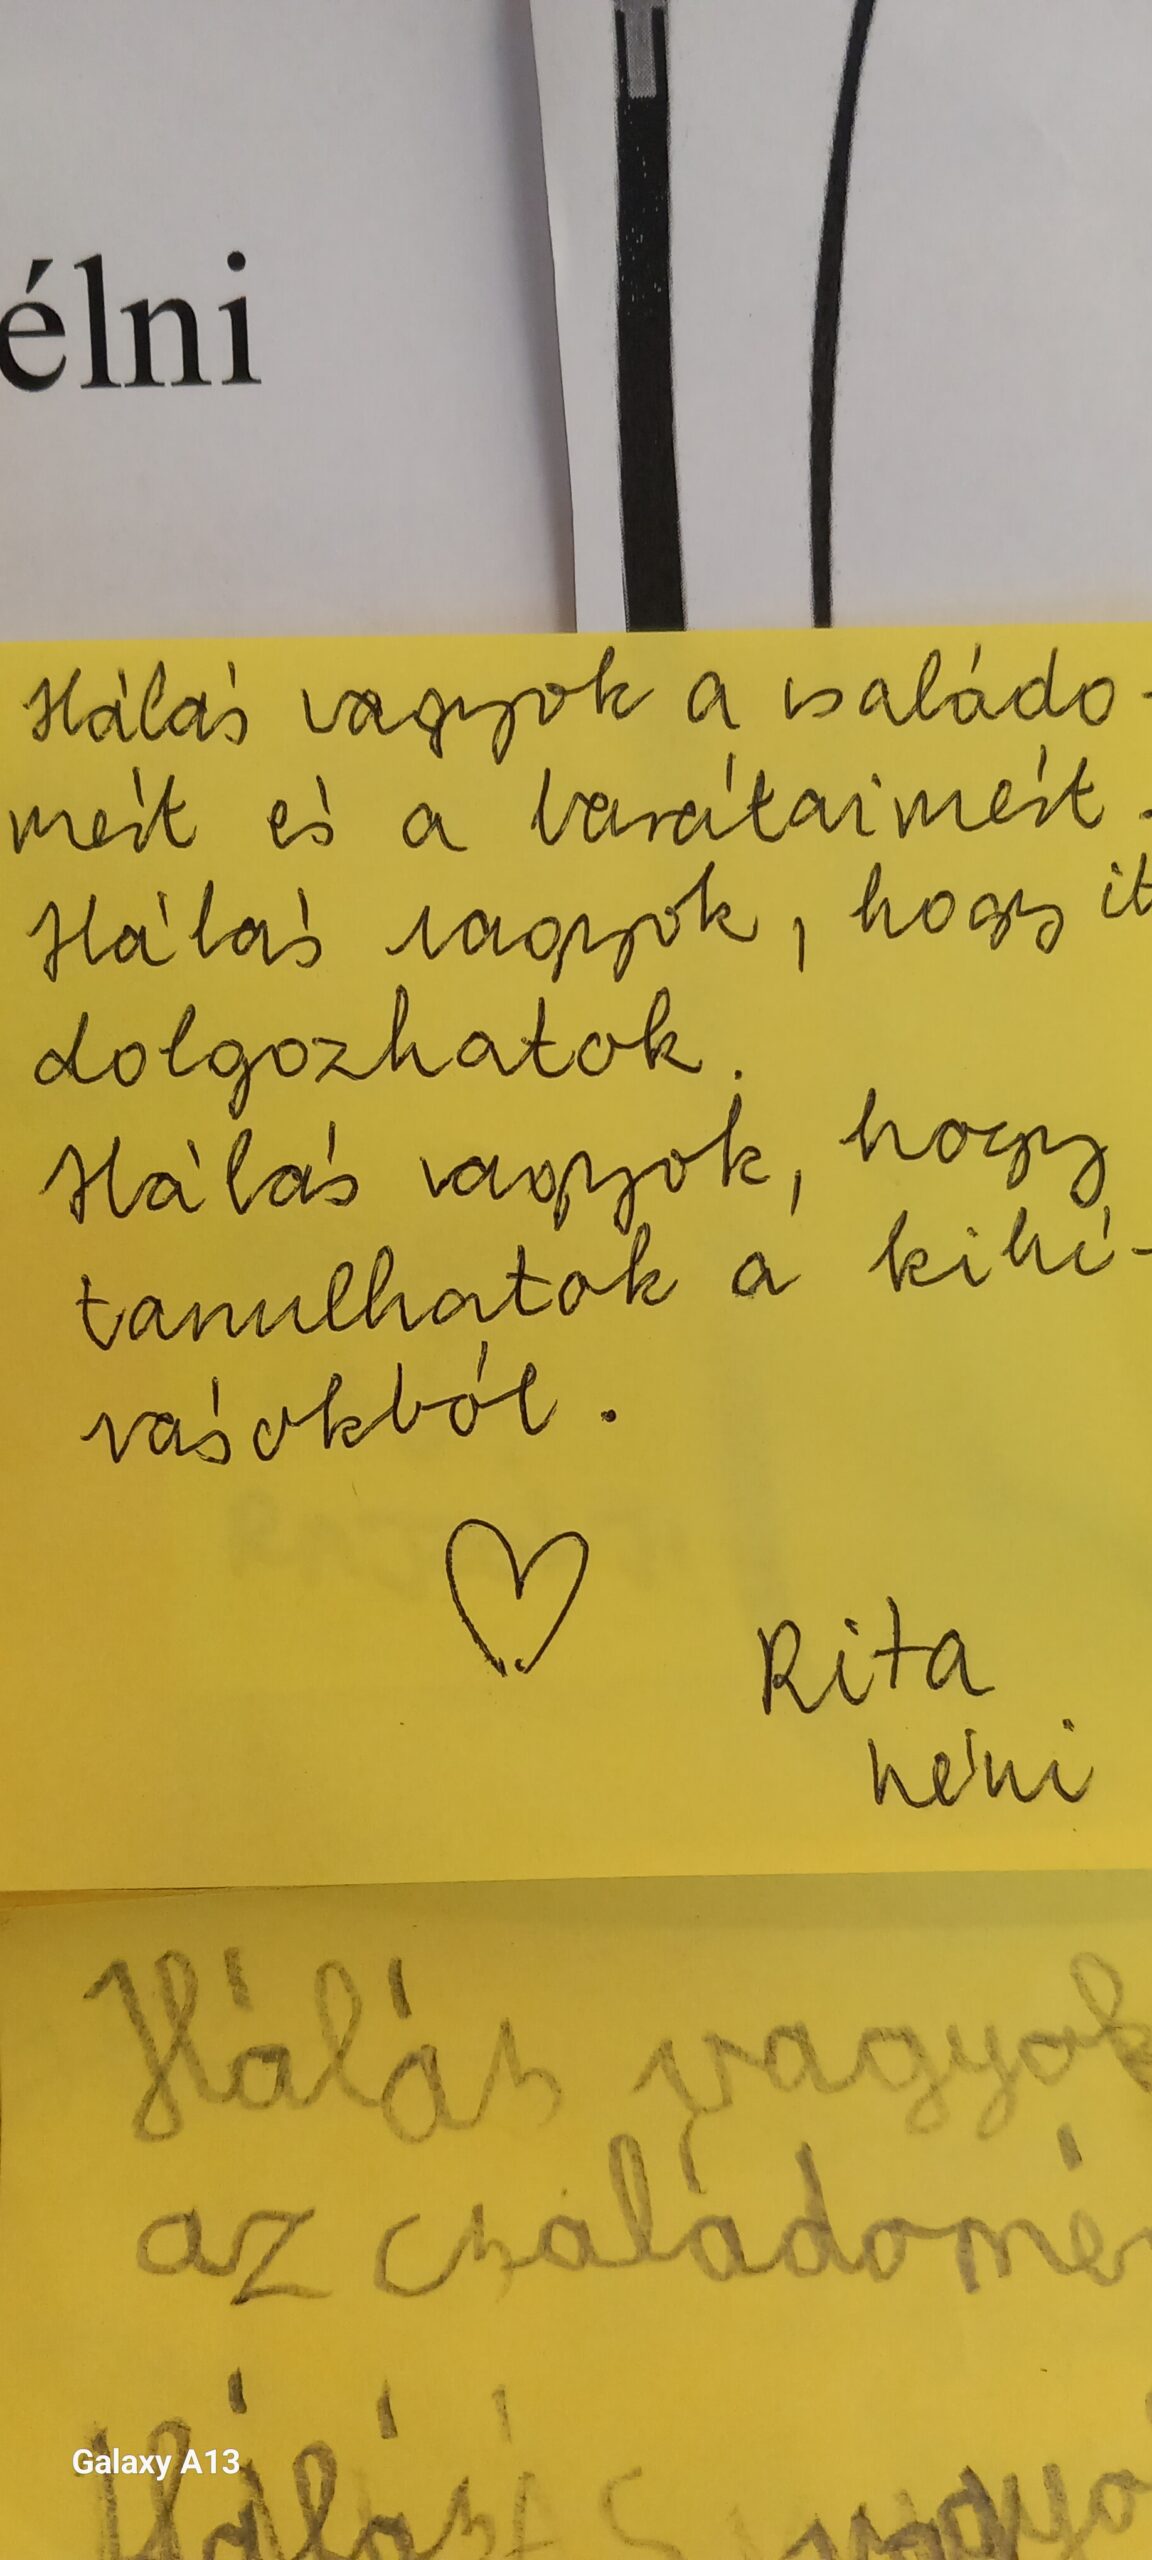 élni
Hálás vagyok a családo-
mért és a barátaimért.
Hálás vagyok, hogy it
dolgozhatok.
Hálás vagyok, hogy
tanulhatok a kihí-
vásokból.
Rita
néni
Hálás vagyok
az családomér
Hálás vagyo
Galaxy A13